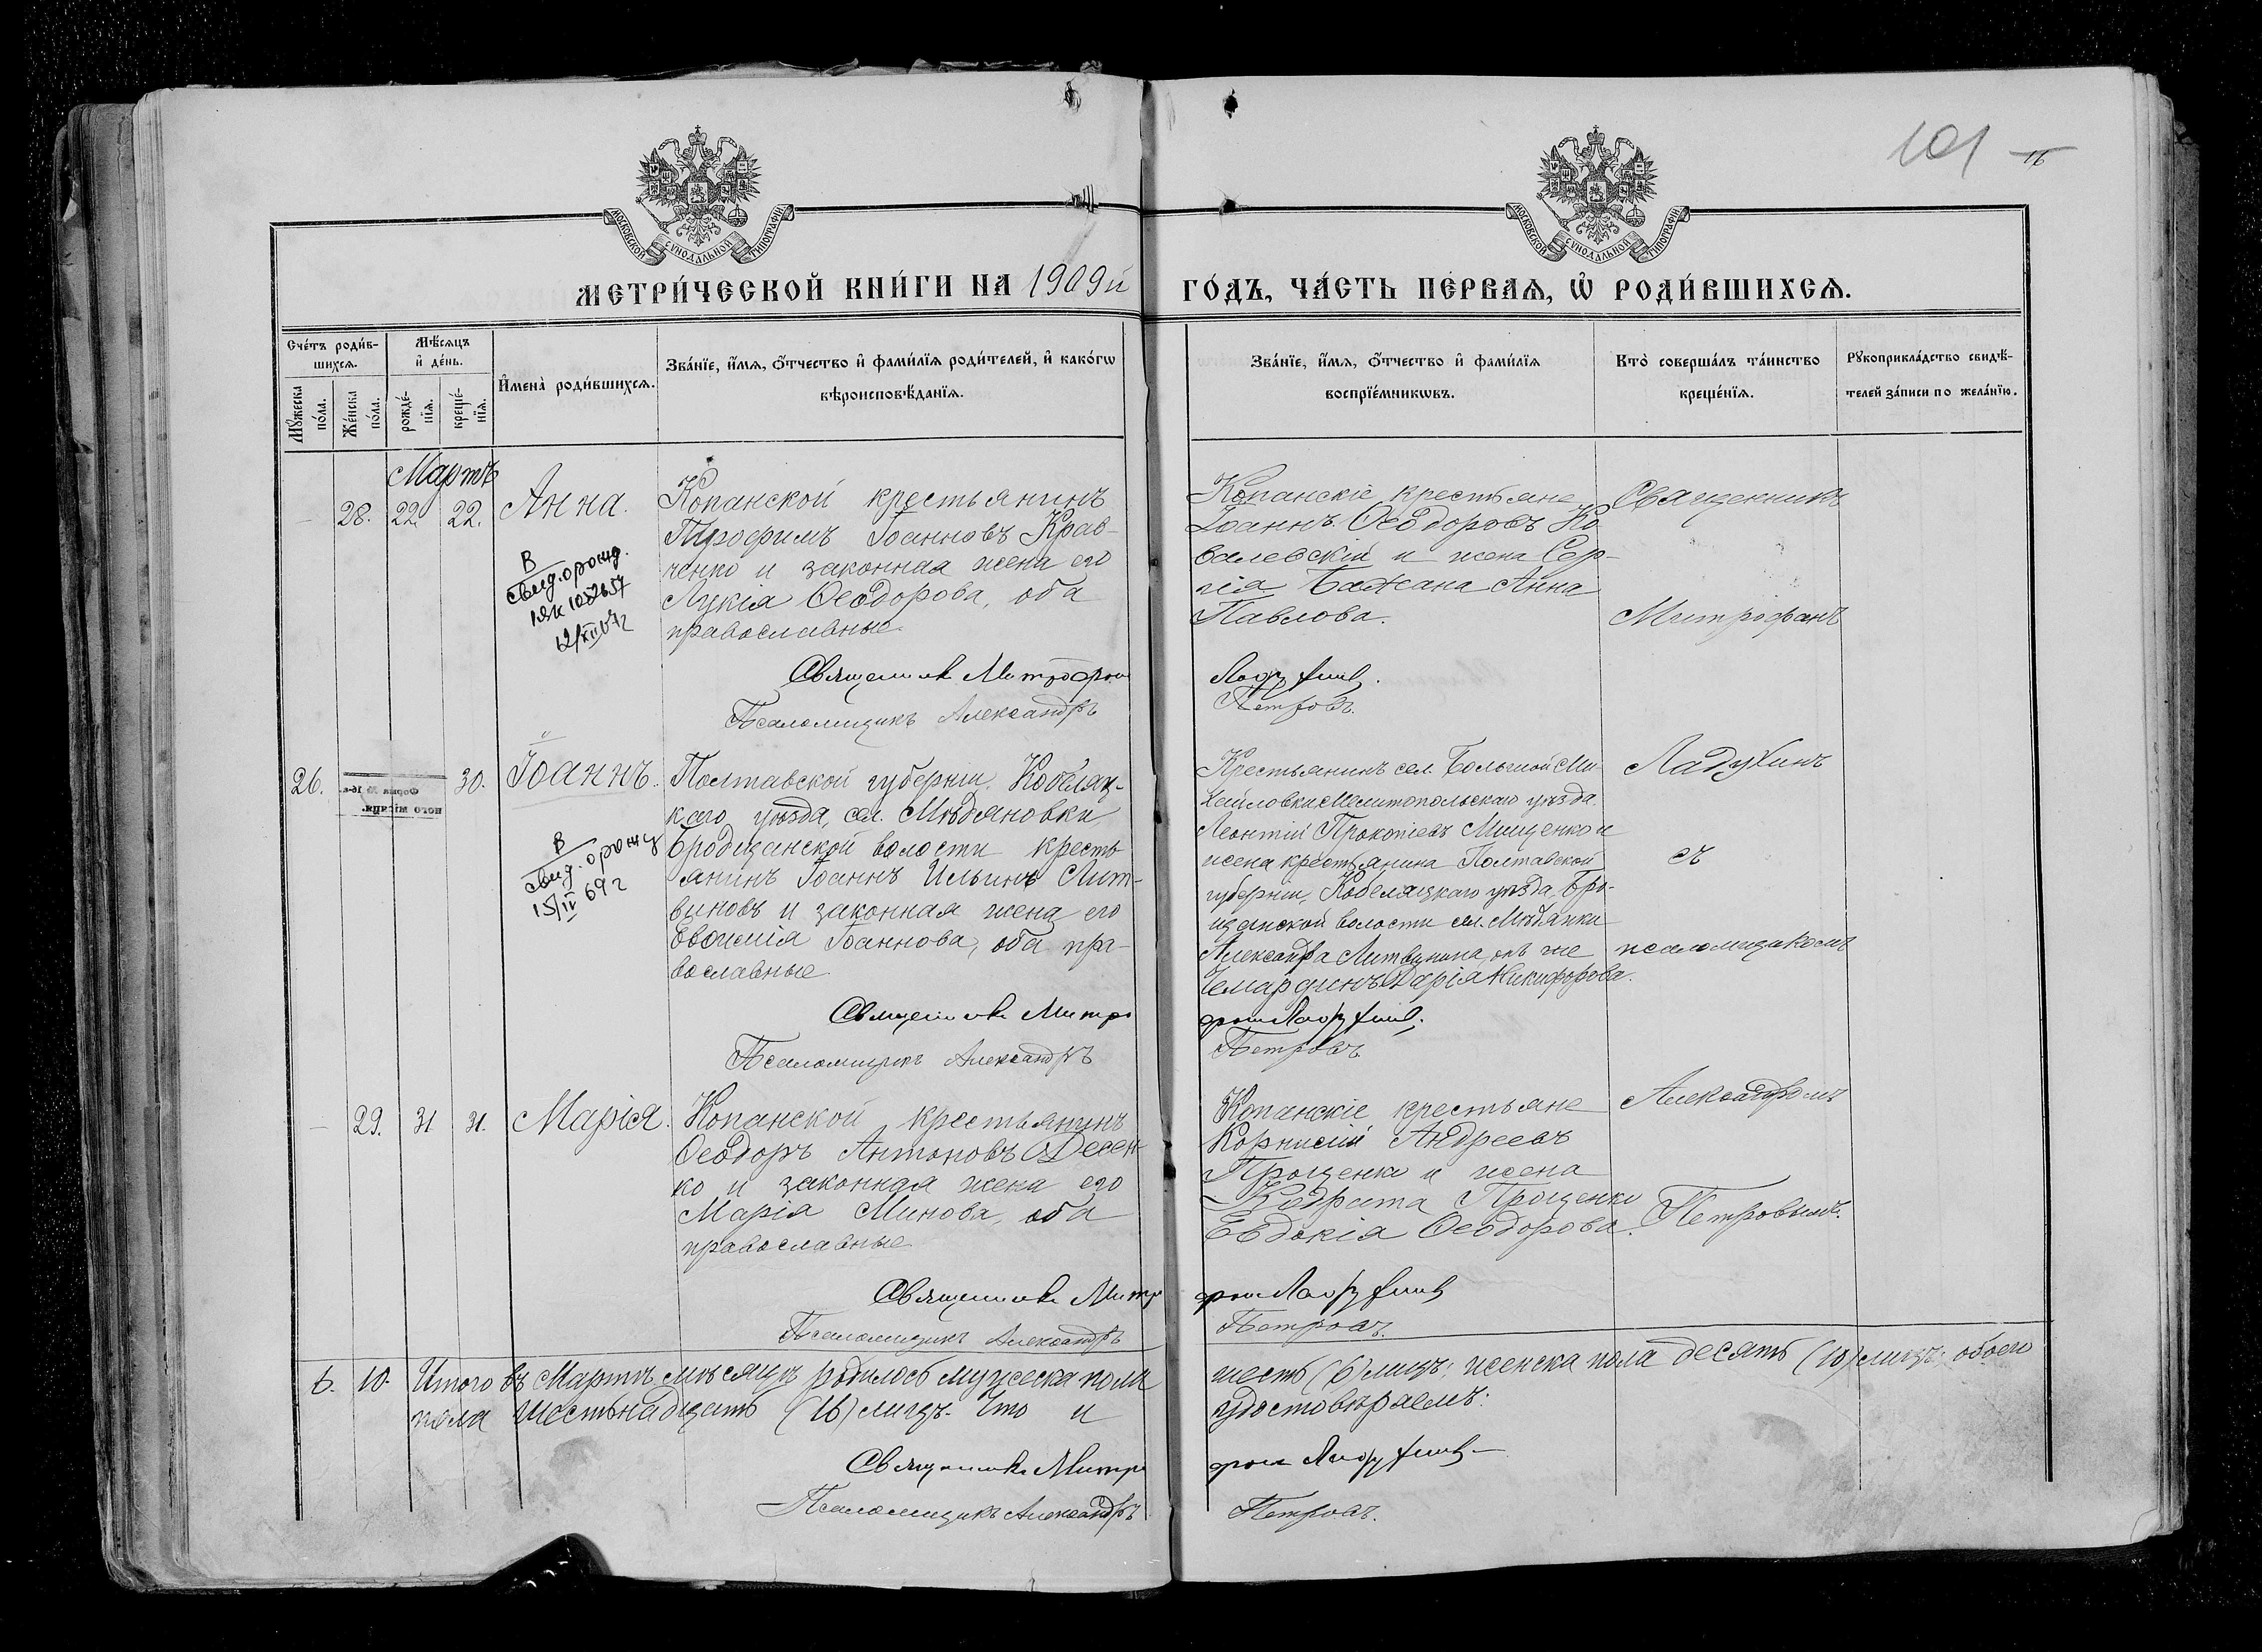 101
16
МОСКОВСКОЙ СѴНОДАЛЬНОЙ ТИПОГРАФІИ
МОСКОВСКОЙ СѴНОДАЛЬНОЙ ТИПОГРАФІИ
МЕТРИ́ЧЕСКОЙ КНИ́ГИ НА 1909й ГО́ДЪ, ЧА́СТЬ ПЕ́РВАѦ, Ѽ РОДИ́ВШИХСѦ.
Сче́тъ роди́в-
шихсѧ.
Мꙋжеска по́ла.
Же́нска по́ла.
Мѣ́сѧцъ
и҆ де́нь.
рожде́-
нїѧ.
креще́-
нїѧ.
И҆мена̀ роди́вшихсѧ.
Зва́нїе, и҆́мѧ, ѻ҆́тчество и҆ фами́лїѧ роди́телей, и҆ како́гѡ
вѣроисповѣ́данїѧ.
Зва́нїе, и҆́мѧ, ѻ҆́тчество и҆ фами́лїѧ
воспрїе́мникѡвъ.
Кто̀ соверша́лъ та́инство
креще́нїѧ.
Рꙋкоприкла́дство свидѣ́-
телей за́писи по жела́нїю.
Мартъ
28. 22. 22. Анна.
В
свид. о рожд.
12/XII 67 г
Копанской крестьянинъ
Трофимъ Іоанновъ Крав-
ченко и законная жена его
Лукія Ѳеодорова, оба
православные.
Священникъ Митрофан
Псаломщикъ Александръ
Копанскіе крестьяне
Іоаннъ Ѳеодоровъ Ко
валевскій и жена Сер-
гія Бажана Анна
Павлова.
Ладухинъ.
Петровъ.
Священникъ
Митрофанъ
26. 30. Іоаннъ.
Форма № 16-а.
ного місяця.
В
свид. о рожд
15/II 69 г
Полтавской губерніи, Кобеляц-
каго уѣзда, сел. Мѣдяновки
Бродщанской волости кресть
янинъ Іоаннъ Ильинъ Лит-
виновъ и законная жена его
Евѳимія Іоаннова, оба пра-
вославные.
Священникъ Митро
Псаломщикъ Александръ
Крестьянинъ сел. Большой Ми-
хайловки Мелитопольскаго уѣзда
Леонтій Прокопіевъ Мищенко и
жена крестьянина Полтавской
губерніи, Кобеляцкаго уѣзда, Бро-
щанской волости сел. Мѣдянки
Александра Литвинина, онъ же
Чемардинъ Дарія Никифорова.
фан Ладухинъ.
Петровъ.
Ладухинъ
съ
псаломщикомъ
29. 31 31. Марія.
Копанской крестьянинъ
Ѳеодоръ Антоновъ Десен
ко и законная жена его
Марія Минова, оба
православные
Священникъ Митро
Псаломщикъ Александръ
Копанскіе крестьяне
Корнилій Андреевъ
Прощенко и жена
Кодрата Прощенко
Евдокія Ѳеодорова.
фан Ладухинъ
Петровъ.
Александромъ
Петровымъ.
6. 10. Итого въ Мартѣ мѣсяцѣ родилось мужеска пола шесть (6) лицъ; женска пола десять (10) лицъ; обоего
пола шестьнадцать (16) лицъ. Что и удостовѣряемъ:
Священникъ Митро фан Ладухинъ
Псаломщикъ Александръ Петровъ.